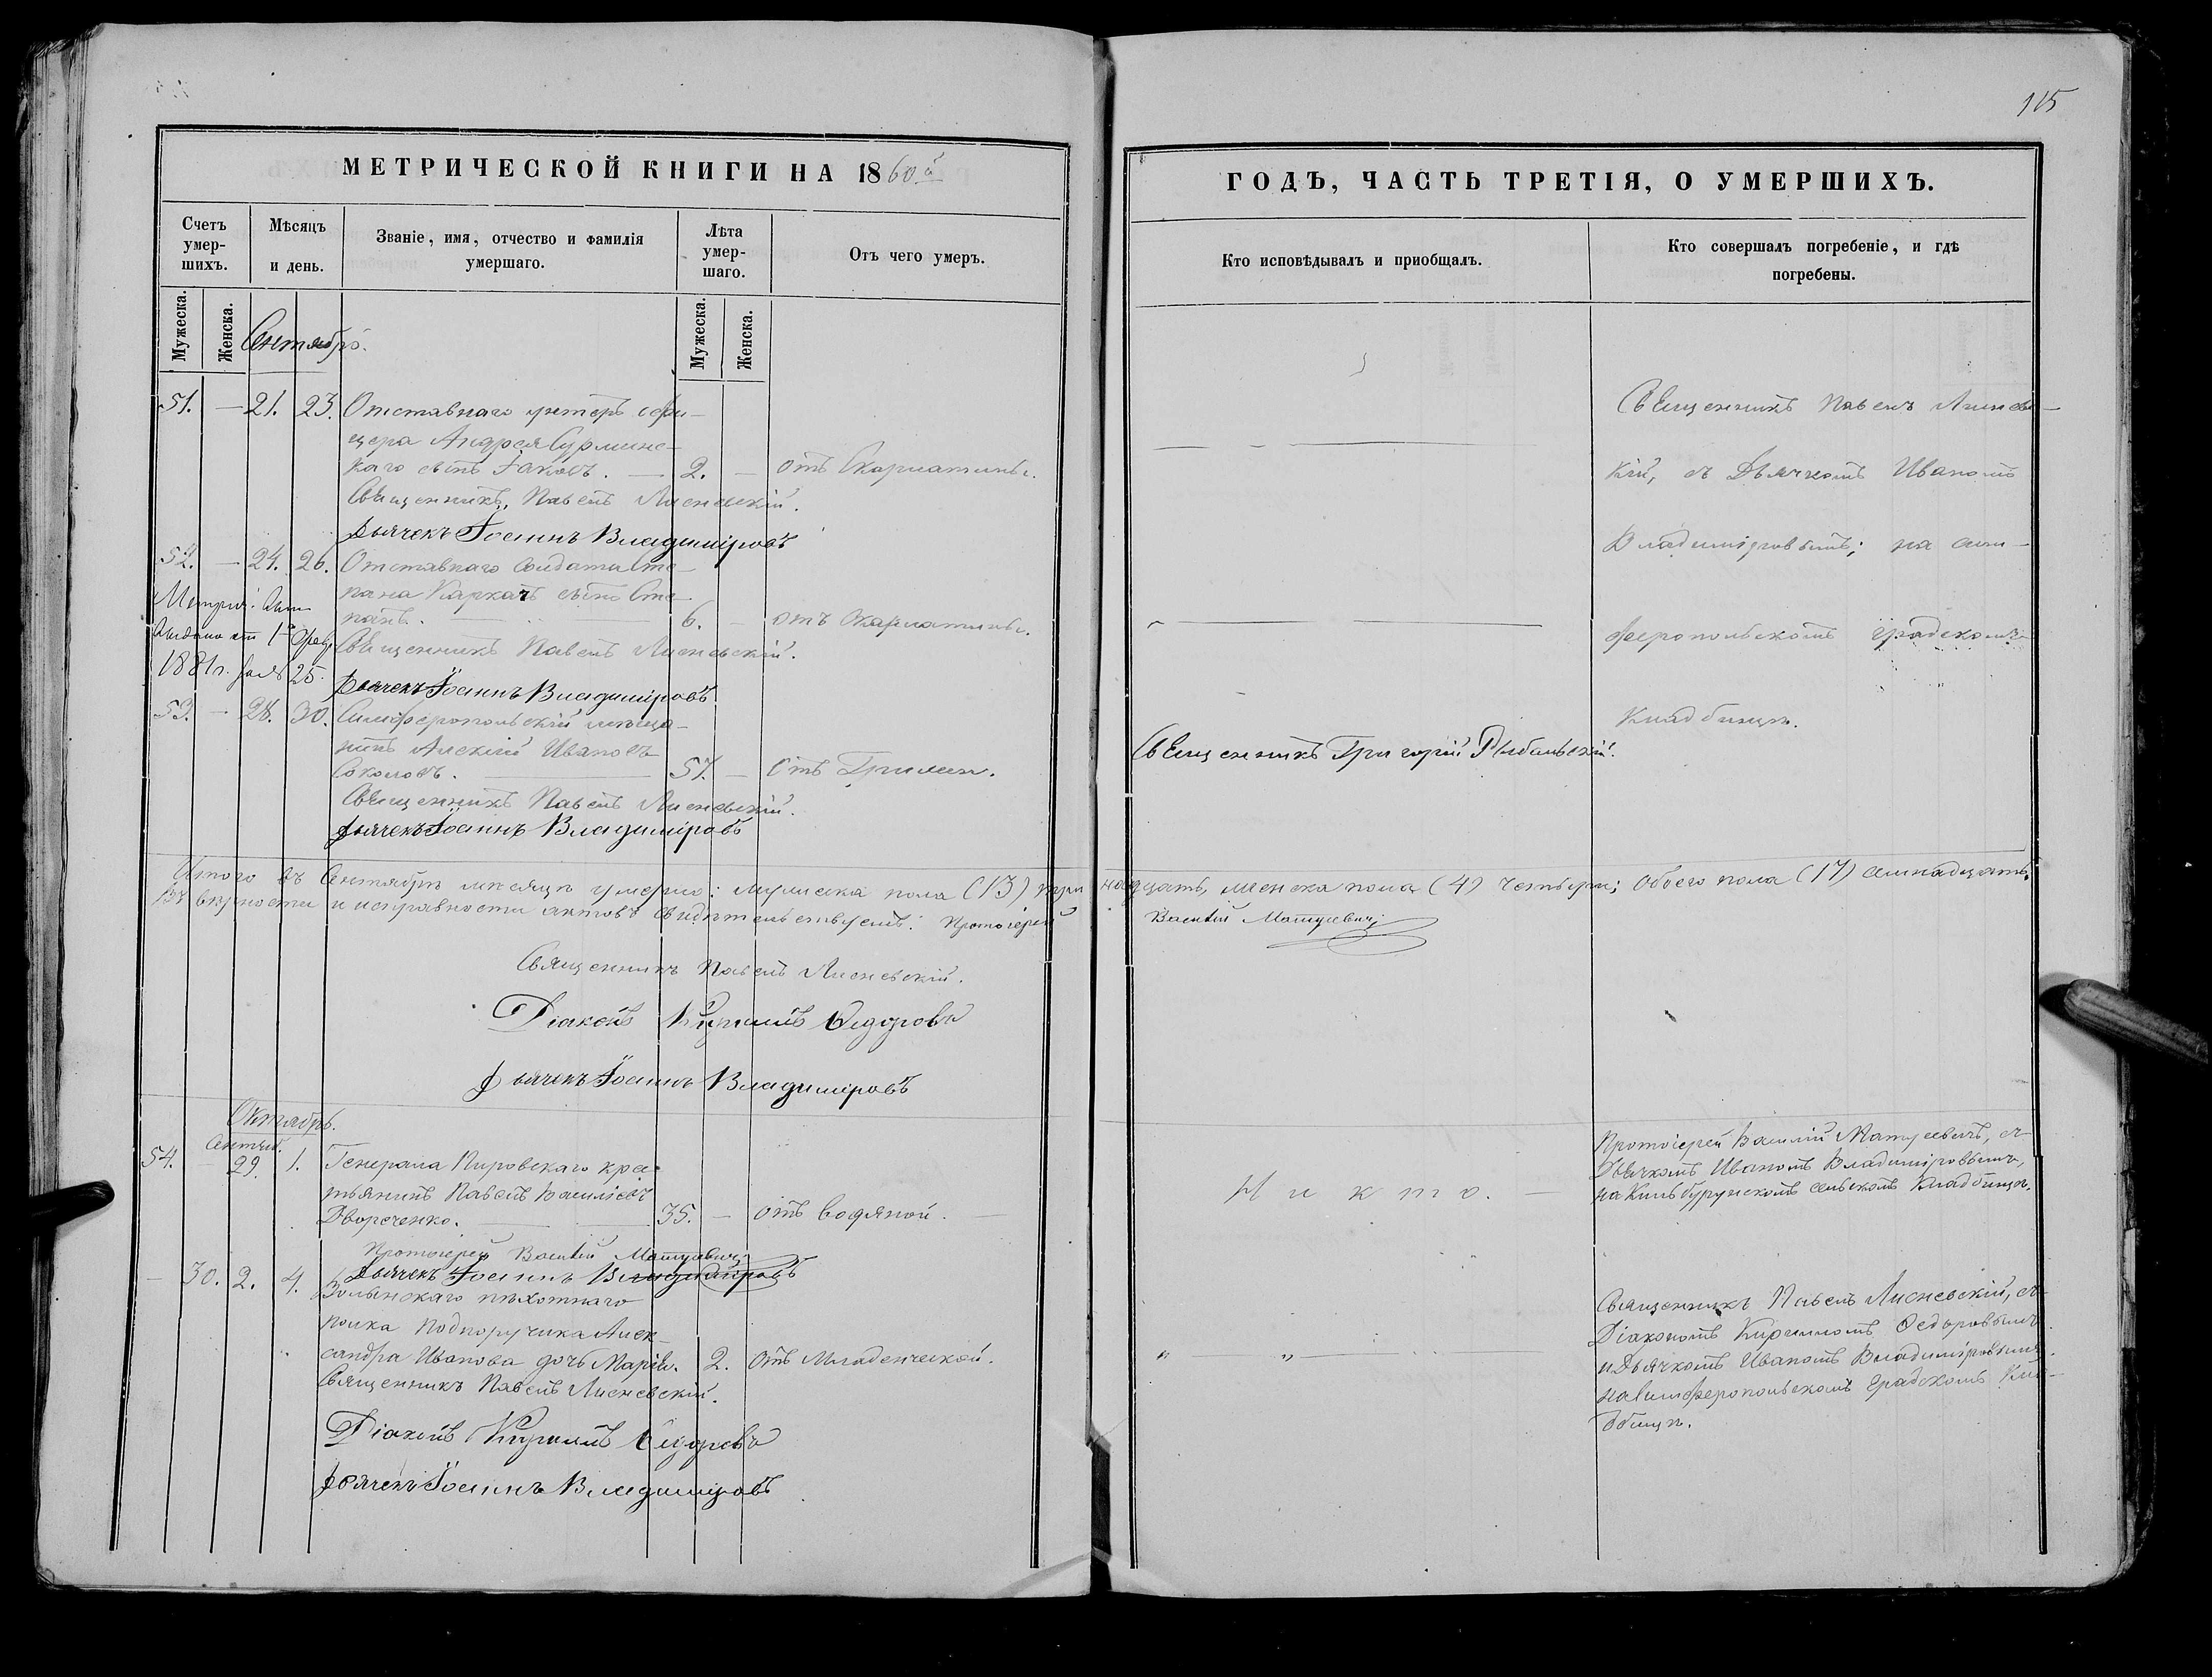 115
МЕТРИЧЕСКОЙ КНИГИ НА 1860й
ГОДЪ, ЧАСТЬ ТРЕТІЯ, О УМЕРШИХЪ.
Счетъ умер-шихъ.
Мѣсяцъ и день.
Званіе, имя, отчество и фамилія умершаго.
Лѣта умер-шаго.
Отъ чего умеръ.
Кто исповѣдывалъ и пріобщалъ.
Кто совершалъ погребеніе, и гдѣ погребены.
Мужеска.
Женска.
Мужеска.
Женска.
Сентябрь.
51. — 21. 23. Отставнаго унтеръ офи-
цера Андрея Сурминс-
каго сынъ Іаковъ. — 2. — отъ Скарлатины.
Священникъ Павелъ Лисневскій.
Дьячекъ Іоаннъ Владиміровъ
52. — 24. 26. Отставнаго Солдата Сте-
пана Каркачъ сынъ Сте-
панъ. 6. — отъ Скарлатины.
Священникъ Павелъ Лисневскій.
Дьячекъ Іоаннъ Владиміровъ
Метрич.
1881 г. 25.
53. — 28. 30. Симферопольскій мѣща-
нинъ Алексій Ивановъ
Соколовъ. 57. — Отъ
Священникъ Павелъ Лисневскій.
Дьячекъ Іоаннъ Владиміровъ
Священникъ Григорій Рыбальскій.
Священникъ Павелъ Лиснев-
кій, съ Дьячкомъ Иваномъ
Владиміровымъ; на Сим-
феропольскомъ градскомъ
Кладбищѣ.
Итого въ Сентябрѣ мѣсяцѣ умерло: мужеска пола (13) тринадцать, женска пола (4) четыри; обоего пола (17) семнадцать.
Въ вѣрности и исправности актовъ свидѣтельствуемъ: Протоіерей Василій Матушевичъ
Священникъ Павелъ Лисневскій.
Діаконъ Кириллъ Ѳедоровъ
Дьячекъ Іоаннъ Владиміровъ
Октябрь.
Сентяб.
54. — 29. 1. Генерала Пировскаго кре-
тьянинъ Павелъ Василіевъ
Дворченко. 35. — отъ водяной. —
Протоіерей Василій Матушевичъ
Дьячекъ Іоаннъ Владиміровъ
Никто. —
Протоіерей Василій Матушевичъ, съ
Дьячкомъ Иваномъ Владиміровымъ,
на Кильбурунскомъ сельскомъ Кладбищѣ.
— 30. 2. 4. Волынскаго пѣхотнаго
полка Подпоручика Алек-
сандра Иванова дочь Марія. 2. отъ Младенческой.
Священникъ Павелъ Лисневскій.
Діаконъ Кириллъ Ѳедоровъ
Дьячекъ Іоаннъ Владиміровъ
Священникъ Павелъ Лисневскій, съ
Діакономъ Кирилломъ Ѳедоровымъ
и Дьячкомъ Иваномъ Владиміровымъ
на Симферопольскомъ градскомъ Кла-
дбищѣ.